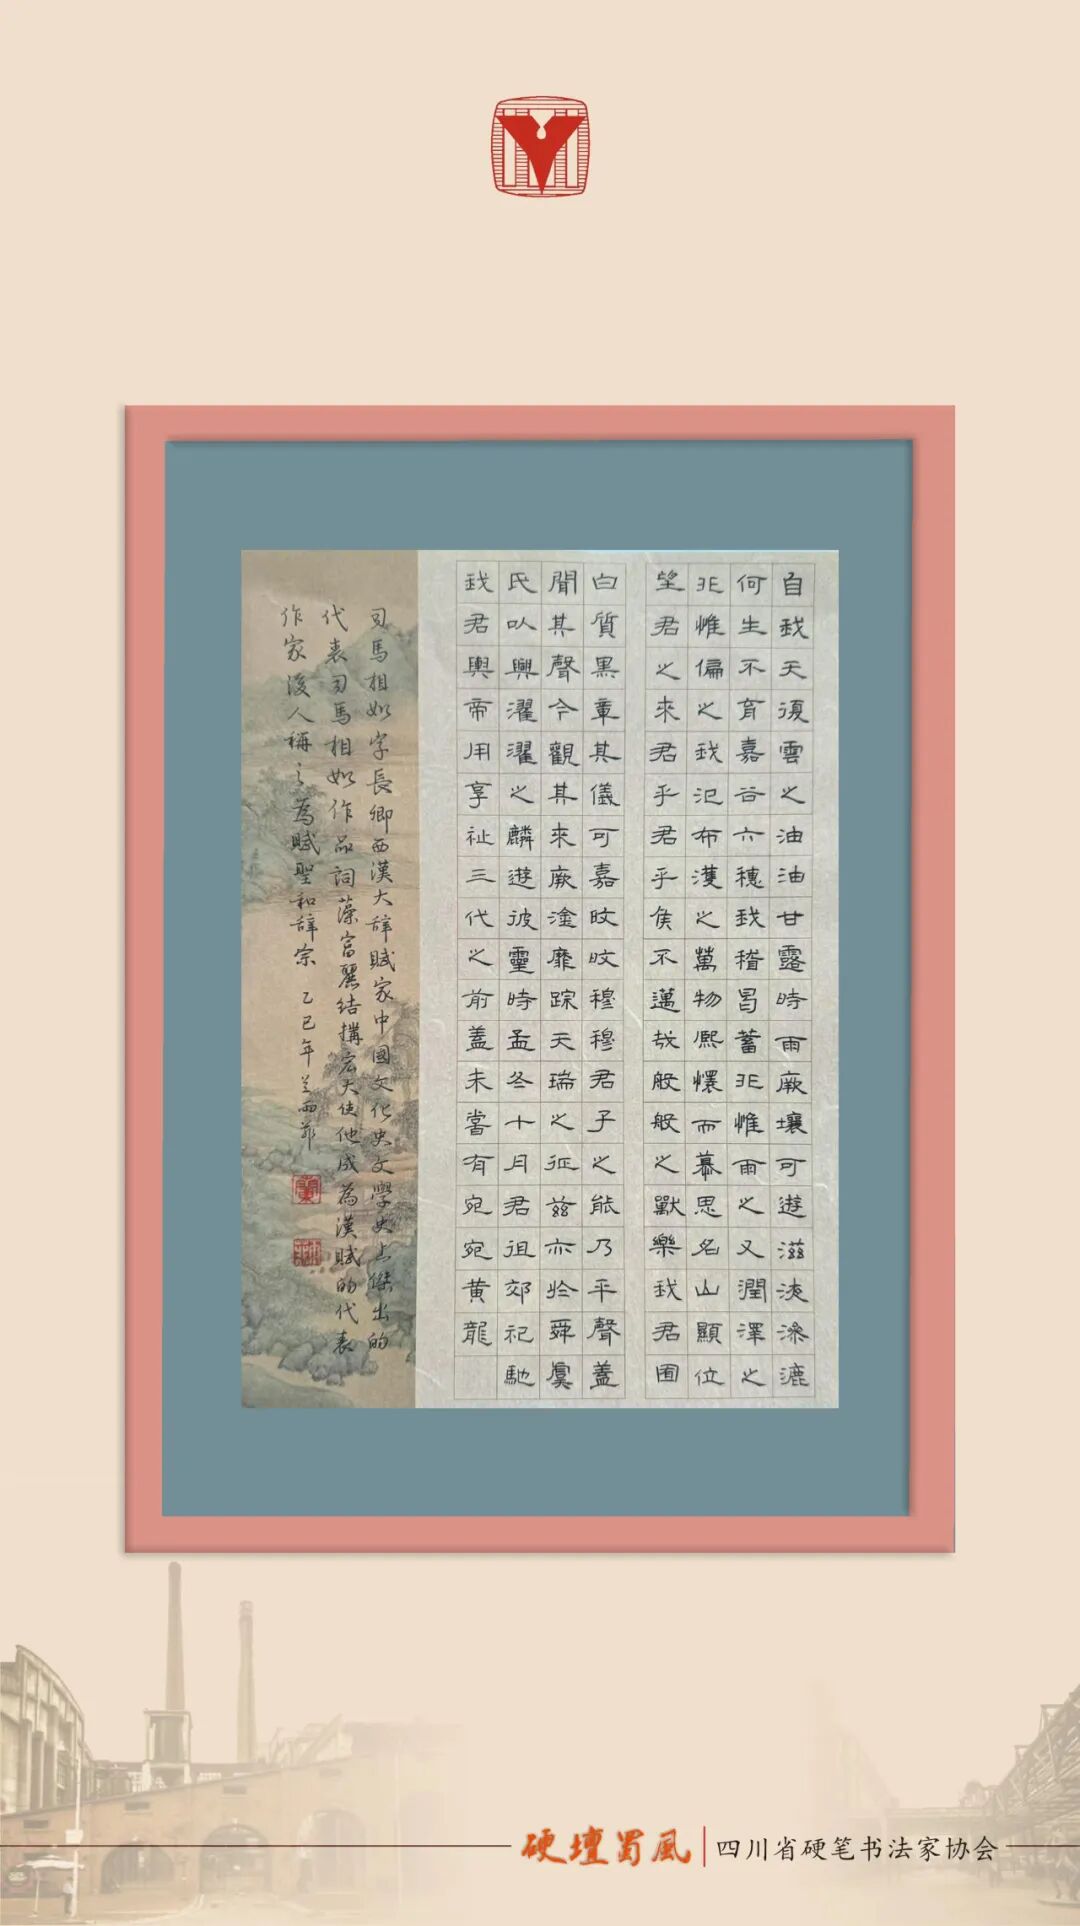 自我天覆雲之油油甘露時雨厥壤可遊滋液滲漉
何生不育嘉谷六穗我穡曷蓄非惟雨之又潤澤之
非惟偏之我氾布濩之萬物熙懷而慕思名山顯位
望君之來君乎君乎侯不邁哉般般之獸樂我君囿
白質黑章其儀可嘉旼旼穆穆君子之能乃平聲蓋
聞其聲今觀其來厥塗靡踪天瑞之征茲亦於舜虞
氏以興濯濯之麟遊彼靈時孟冬十月君徂郊祀馳
我君輿帝用享祉三代之前蓋未嘗有宛宛黃龍
司馬相如字長卿西漢大辞賦家中國文化史文學史上傑出的
代表司馬相如作品詞藻富麗结構宏大使他成為漢賦的代表
作家後人稱之為賦聖和辞宗 乙巳年兰雨菲
硬壇蜀風
四川省硬笔书法家协会